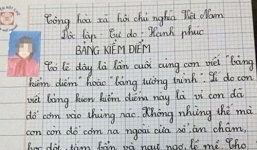 Cộng hòa xã hội chủ nghĩa Việt Nam
Độc lập - Tự do - Hạnh phúc
BẢNG KIỂM ĐIỂM
Có lẽ đây là lần cuối cùng con viết "bảng
kiểm điểm" hoặc "bảng tường trình". Lí do con
viết bảng kiểm điểm này là vì con đã
đổ cơm vào thùng rác. Không những thế mà
con còn đổ cơm ra ngoài cửa sổ, ăn chậm,
bẩn và ngủ lề mề. Cho